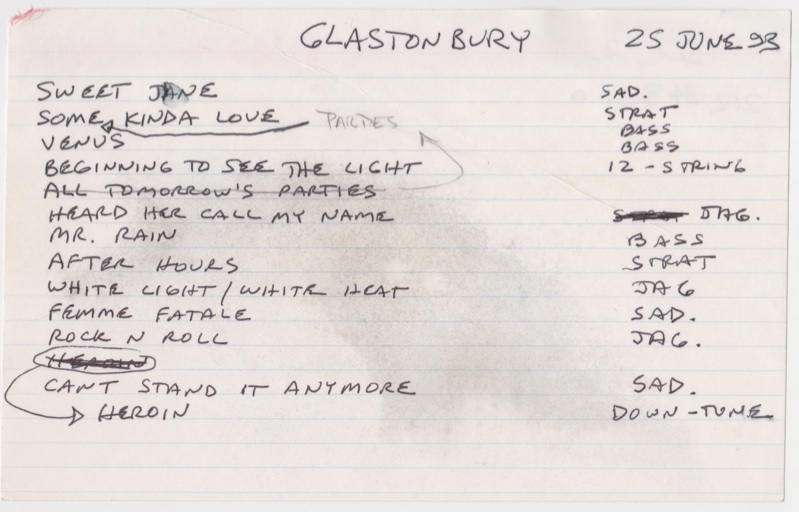 GLASTONBURY 25 JUNE 93
SWEET JANE SAD.
SOME KINDA LOVE PARTIES STRAT
VENUS BASS
BASS
BEGINNING TO SEE THE LIGHT 12-STRING
ALL TOMORROW'S PARTIES
HEARD HER CALL MY NAME STRAT JAG.
MR. RAIN BASS
AFTER HOURS STRAT
WHITE LIGHT/WHITE HEAT JAG
FEMME FATALE SAD.
ROCK N ROLL JAG.
HEROIN
CANT STAND IT ANYMORE SAD.
HEROIN DOWN-TUNE